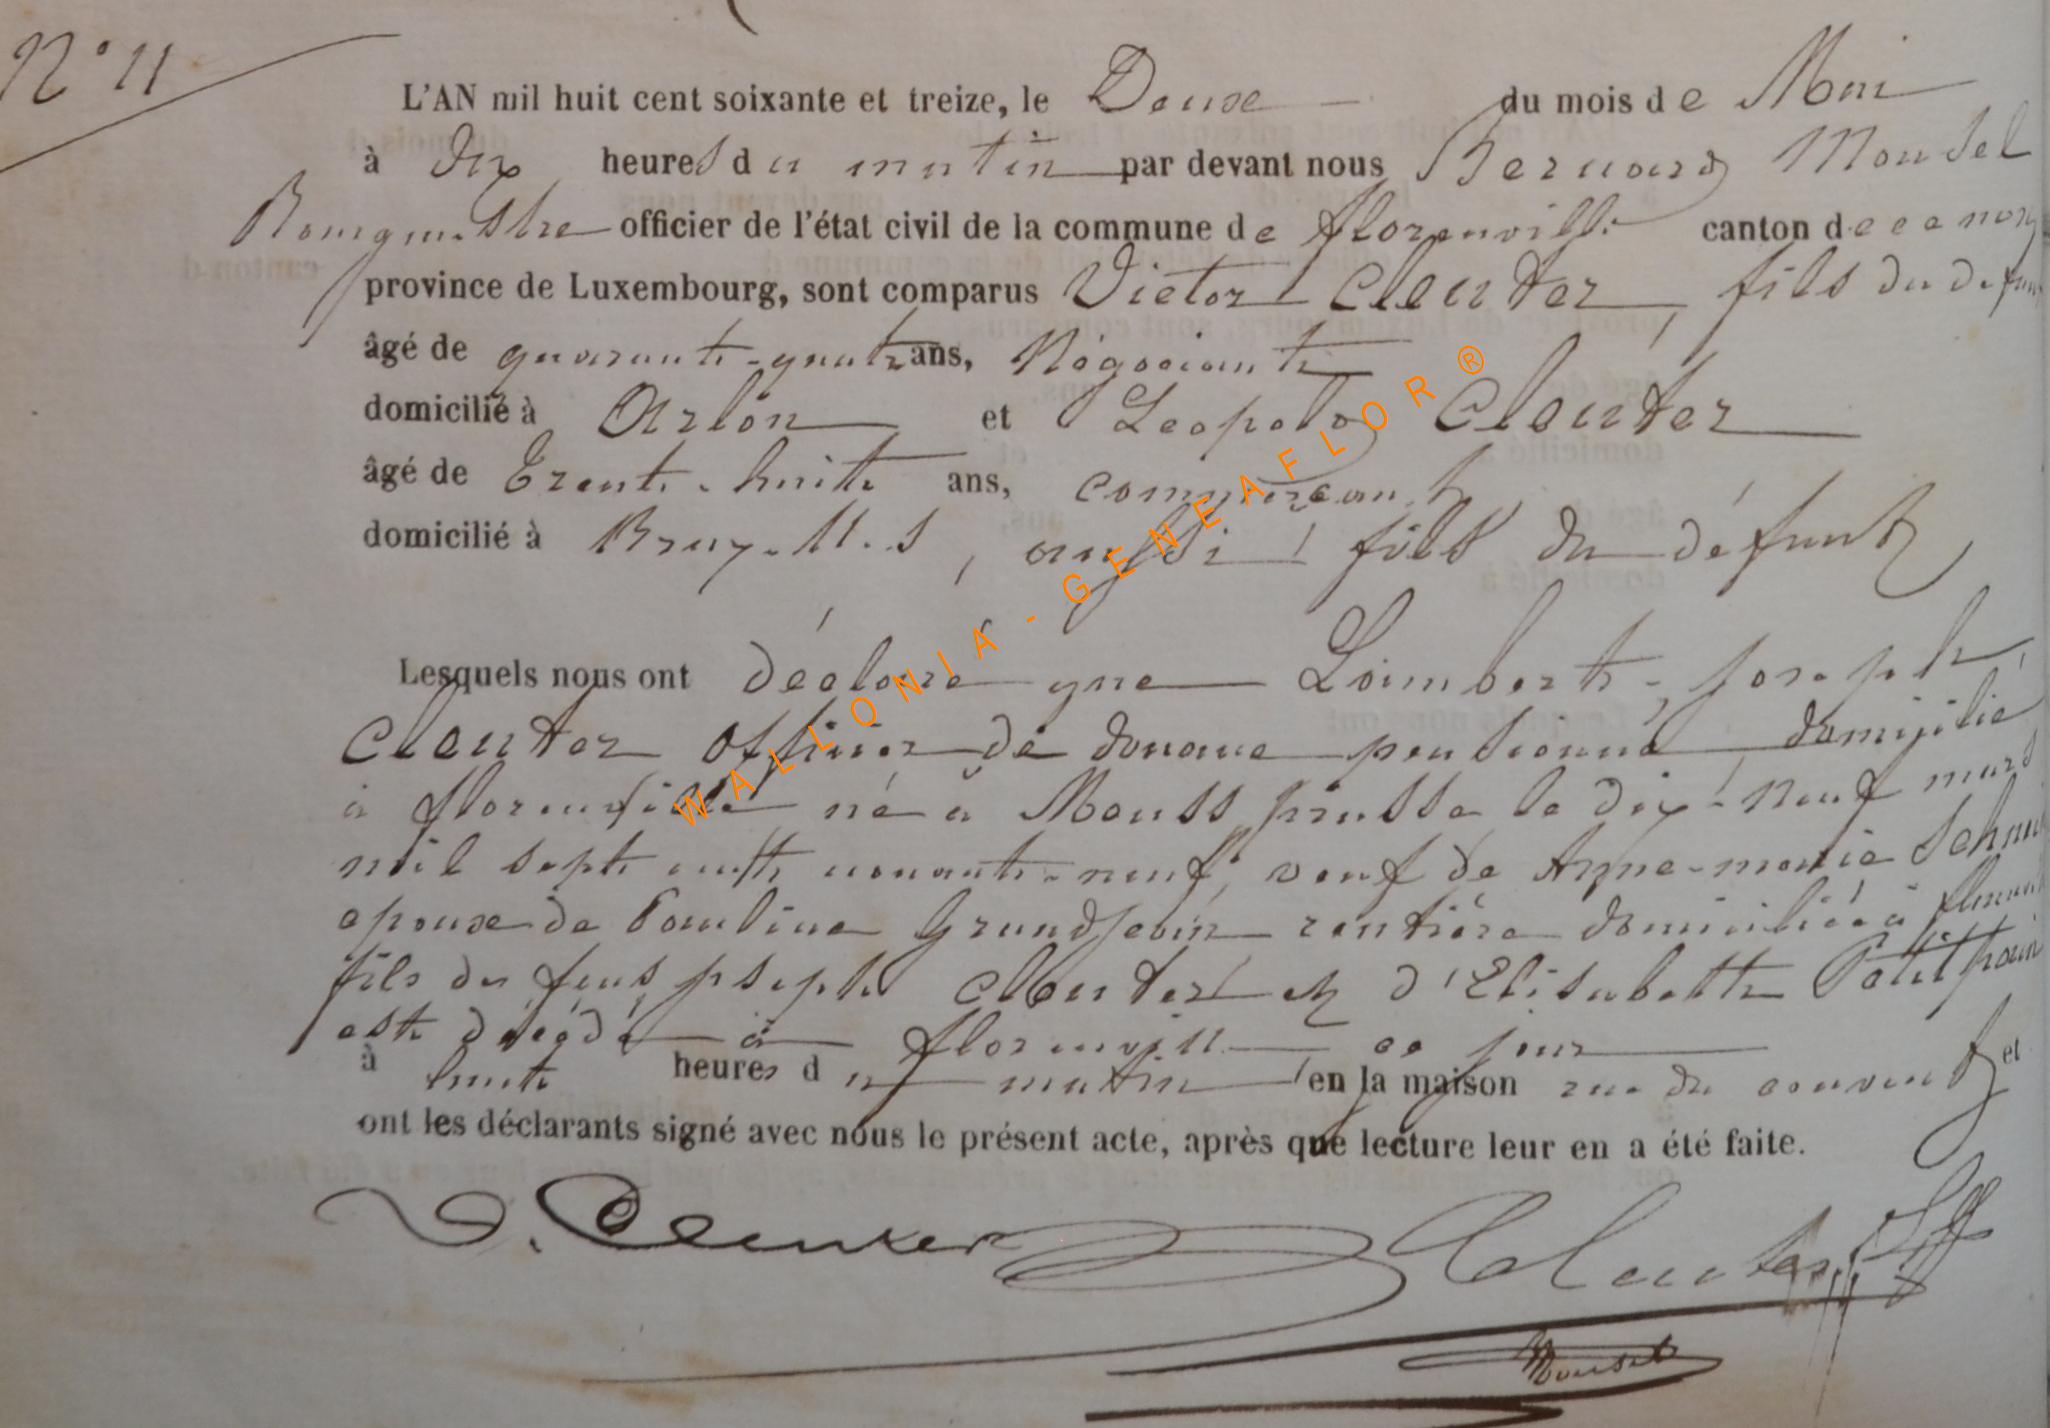 N° 11
L'AN mil huit cent soixante et treize, le Douse du mois de Mai
à dix heures du matin par devant nous Bernard Mousel
Bourgmestre officier de l'état civil de la commune de florenville canton de
province de Luxembourg, sont comparus Victor Cleuter, fils du défunt
âgé de quarante-quatre ans, Négociant
domicilié à Arlon et Léopold Cleuter
âgé de Trente-huit ans, commercant
domicilié à Bruxelles, aussi fils du défunt,
Lesquels nous ont déclaré que Lambert-Joseph
Cleuter officier de douane pensionné domicilié
à florenville né à Prusse le dix-neuf mars
mil sept cent nonante-neuf, veuf de Anne-marie
epoux de Pauline Grandjean rentière domiciliée à
fils de feus Joseph Cleuter et d'Elisabeth Petitpain
est décédé à florenville ce jour
à huit heures du matin en la maison rue du couvent et
ont les déclarants signé avec nous le présent acte, après que lecture leur en a été faite.
V. Cleuter Cleuter
Mousel
WALLONIA-GENEAFLOR®